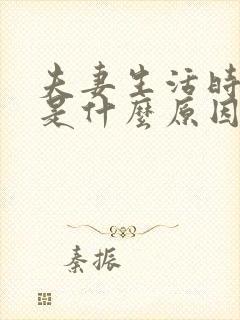 夫妻生活时
是什麼原因
秦振